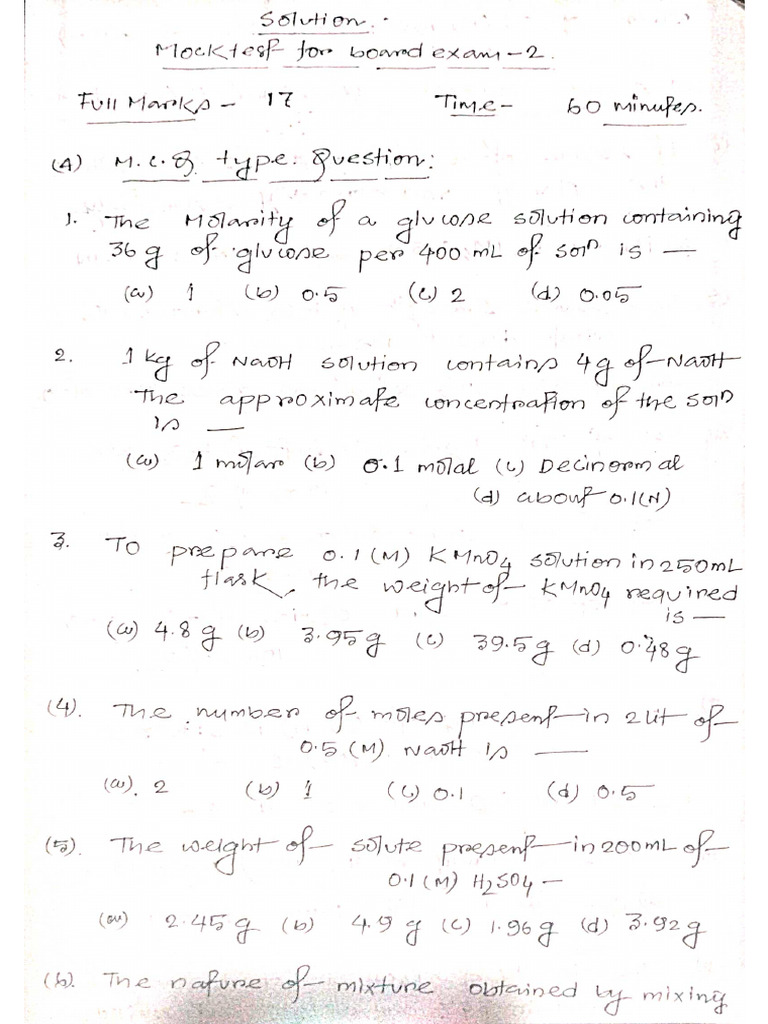 Solution.
Mock test for board exam-2.
Full Marks - 17 Time - 60 minutes.
(A) M.C.Q type Question:
1. The Molarity of a glucose solution containing
36 g of glucose per 400 mL of solⁿ is —
(a) 1 (b) 0.5 (c) 2 (d) 0.05
2. 1 kg of NaOH solution contains 4 g of NaOH
The approximate concentration of the solⁿ
is —
(a) 1 molar (b) 0.1 molal (c) Decinormal
(d) about 0.1(N)
3. To prepare 0.1(M) KMnO4 solution in 250mL
flask, the weight of KMnO4 required
is —
(a) 4.8 g (b) 3.95g (c) 39.5g (d) 0.48g
(4). The number of moles present in 2 lit of
0.5(M) NaOH is —
(a). 2 (b) 1 (c) 0.1 (d) 0.5
(5). The weight of solute present in 200mL of
0.1(M) H2SO4 —
(a) 2.45g (b) 4.9 g (c) 1.96g (d) 3.92g
(6). The nature of mixture obtained by mixing